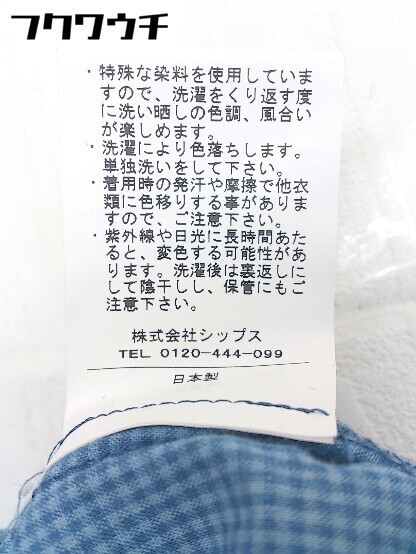 フクワウチ
・特殊な染料を使用していま
すので、洗濯をくり返す度
に洗い晒しの色調、風合い
が楽しめます。
・洗濯により色落ちします。
単独洗いをして下さい。
・着用時の発汗や摩擦で他衣
類に色移りする事がありま
すので、ご注意下さい。
・紫外線や日光に長時間あた
ると、変色する可能性があ
ります。洗濯後は裏返しに
して陰干しし、保管にもご
注意下さい。
株式会社シップス
TEL 0120-444-099
日本製